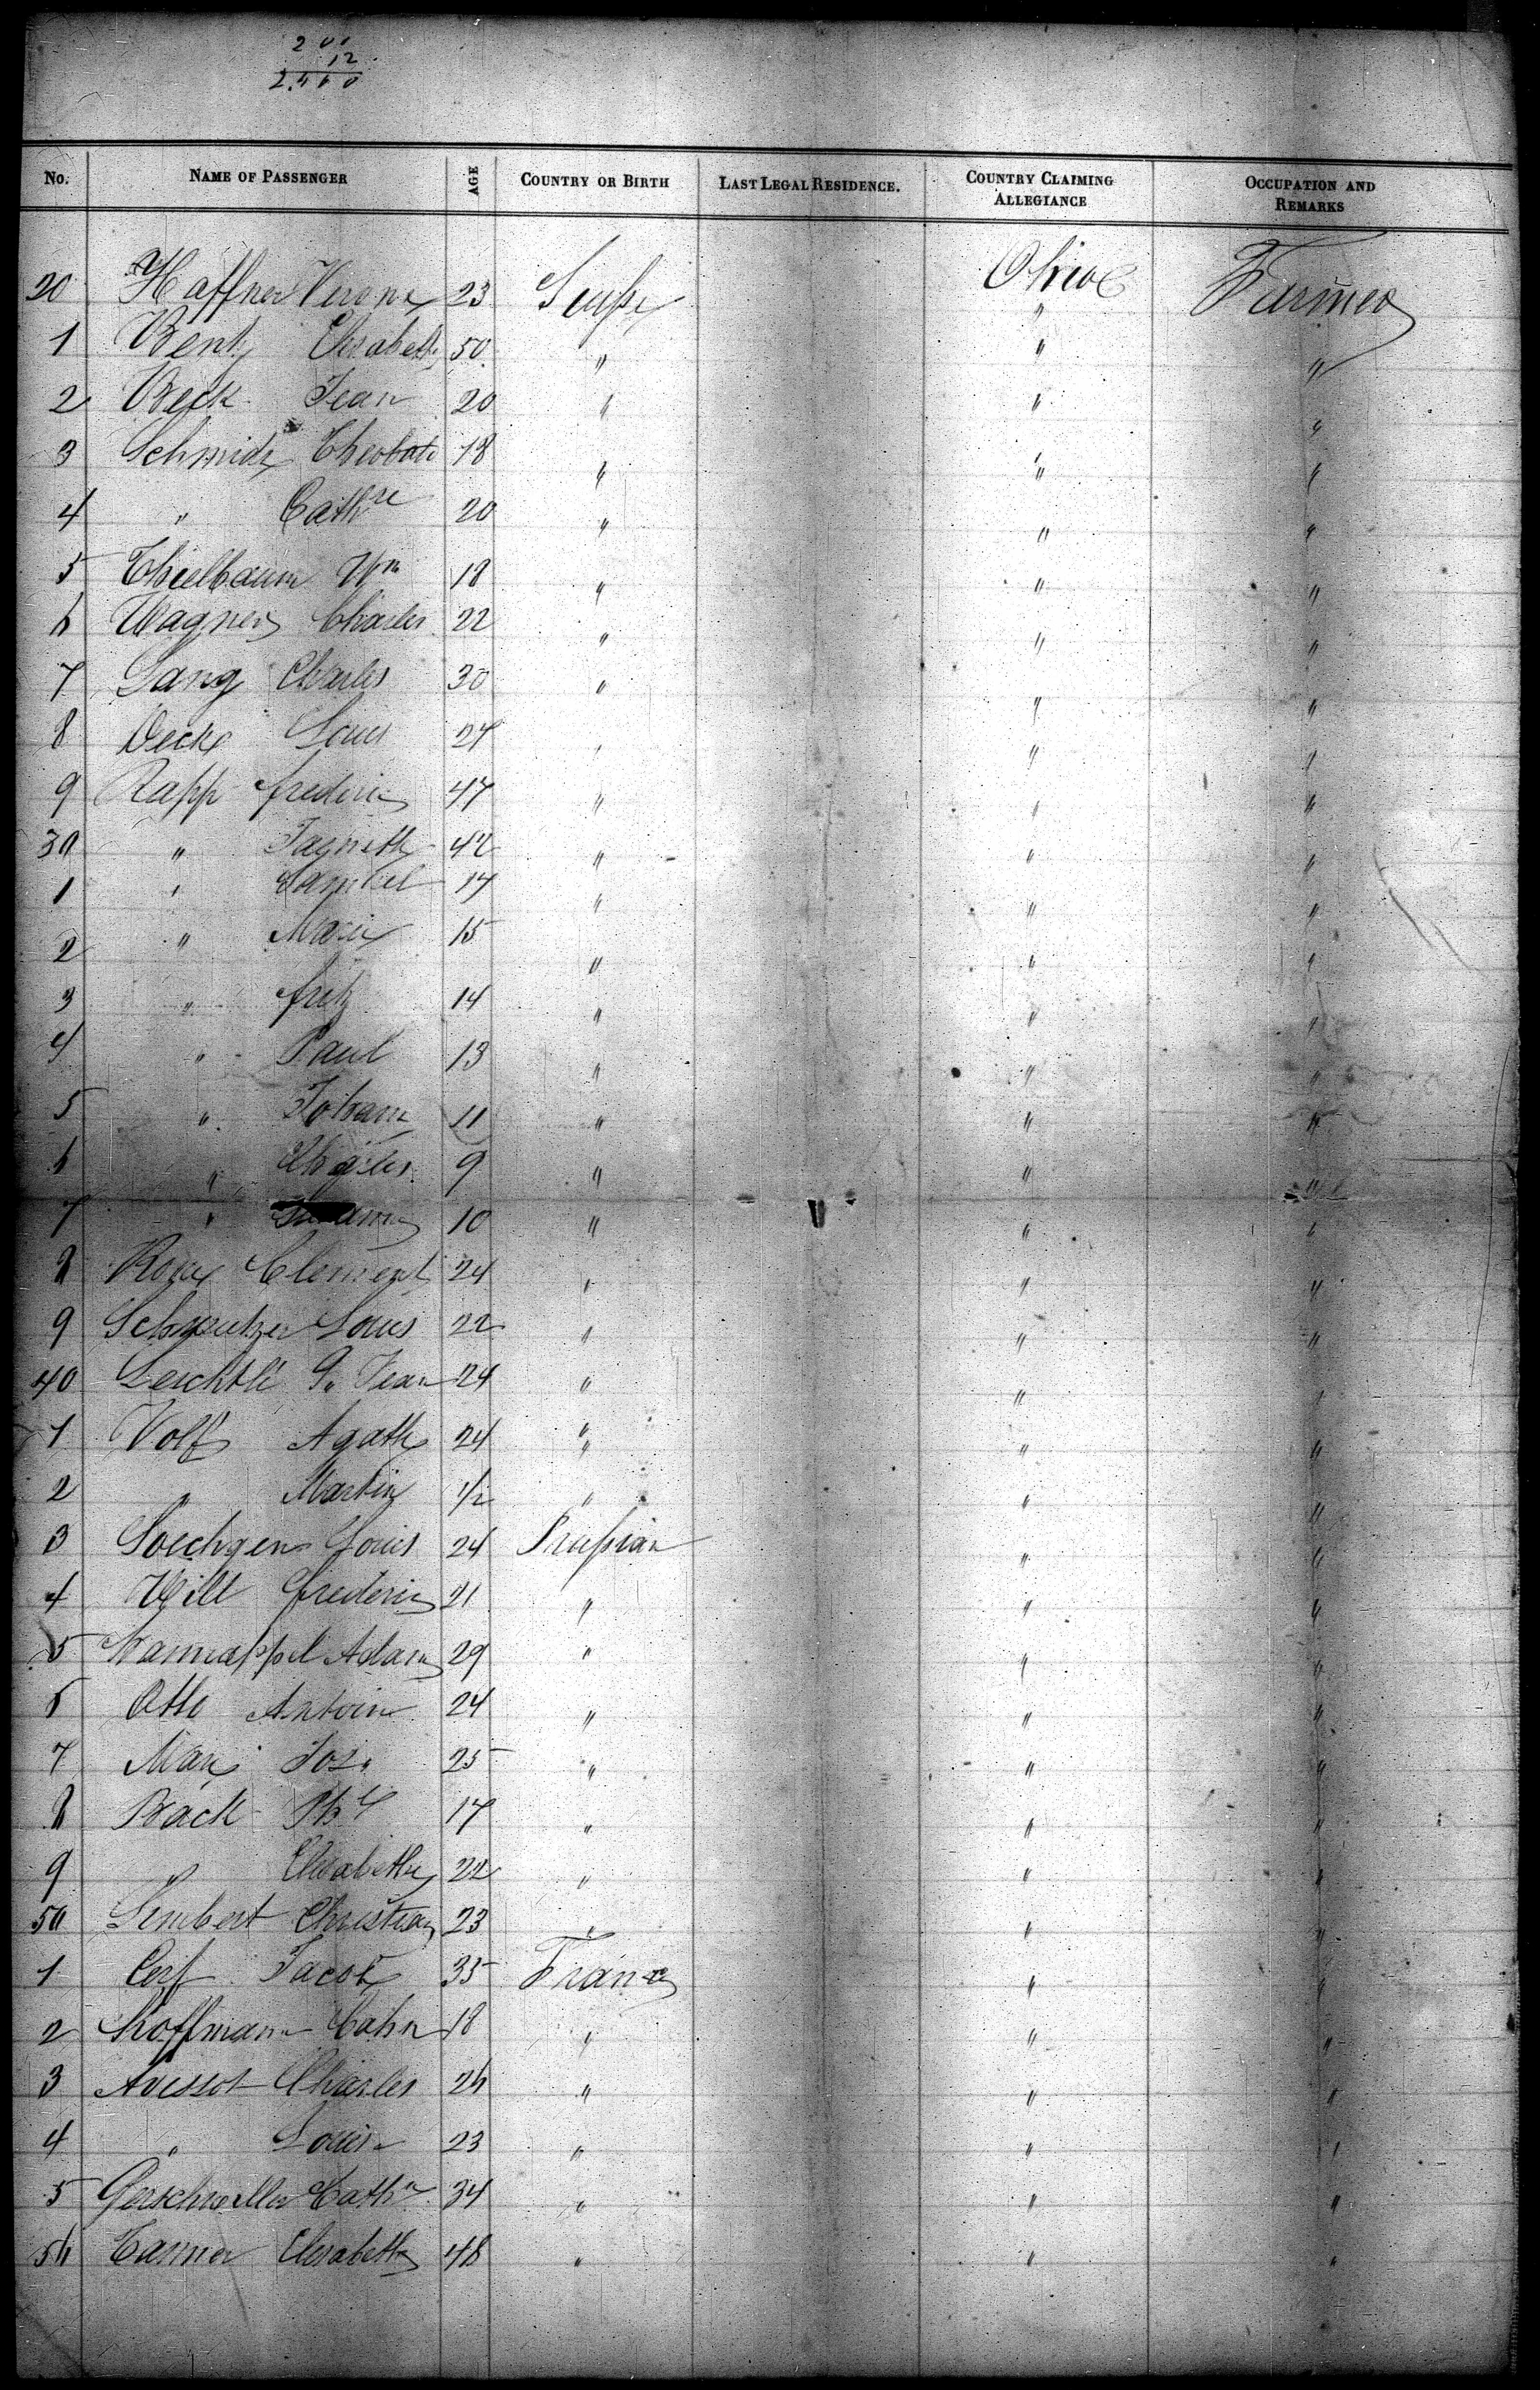 2 0 1
12
2.410
No. NAME OF PASSENGER AGE COUNTRY OR BIRTH LAST LEGAL RESIDENCE. COUNTRY CLAIMING ALLEGIANCE OCCUPATION AND REMARKS
20 Haffner Verone 23 Suisse Ohio Farmer
1 Bentz Elisabeth 50 " " "
2 Beck Jean 20 " " "
3 Schmidt Theobald 18 " " "
4 " Cath re 20 " " "
5 Thielbaum Wm 18 " " "
6 Wagner Charles 22 " " "
7 Lang Charles 30 " " "
8 Deck Louis 27 " " "
9 Rapp frederic 47 " " "
30 " 42 " " "
1 " Samuel 17 " " "
2 " Marie 15 " " "
3 " fritz 14 " " "
4 " Paul 13 " " "
5 " Johann 11 " " "
6 " Charles 9 " " "
7 " 10 " " "
8 Clement 24 " " "
9 Schweitzer Louis 22 " " "
40 G. Jean 24 " " "
1 Volf Agathe 24 " " "
2 " Martin 1/2 " " "
3 Louis 24 Prussian " "
4 Will frederic 21 " " "
5 Adam 29 " " "
6 Otto Antoine 24 " " "
7 Jos. 25 " " "
8 Back 17 " " "
9 " Elisabeth 22 " " "
50 Limbert Christian 23 " " "
1 Cerf Jacob 35 France " "
2 Koffmann Cahn 18 " " "
3 Charles 26 " " "
4 " Louise 23 " " "
5 Gerschwiller Cath e 34 " " "
56 Elisabeth 48 " " "